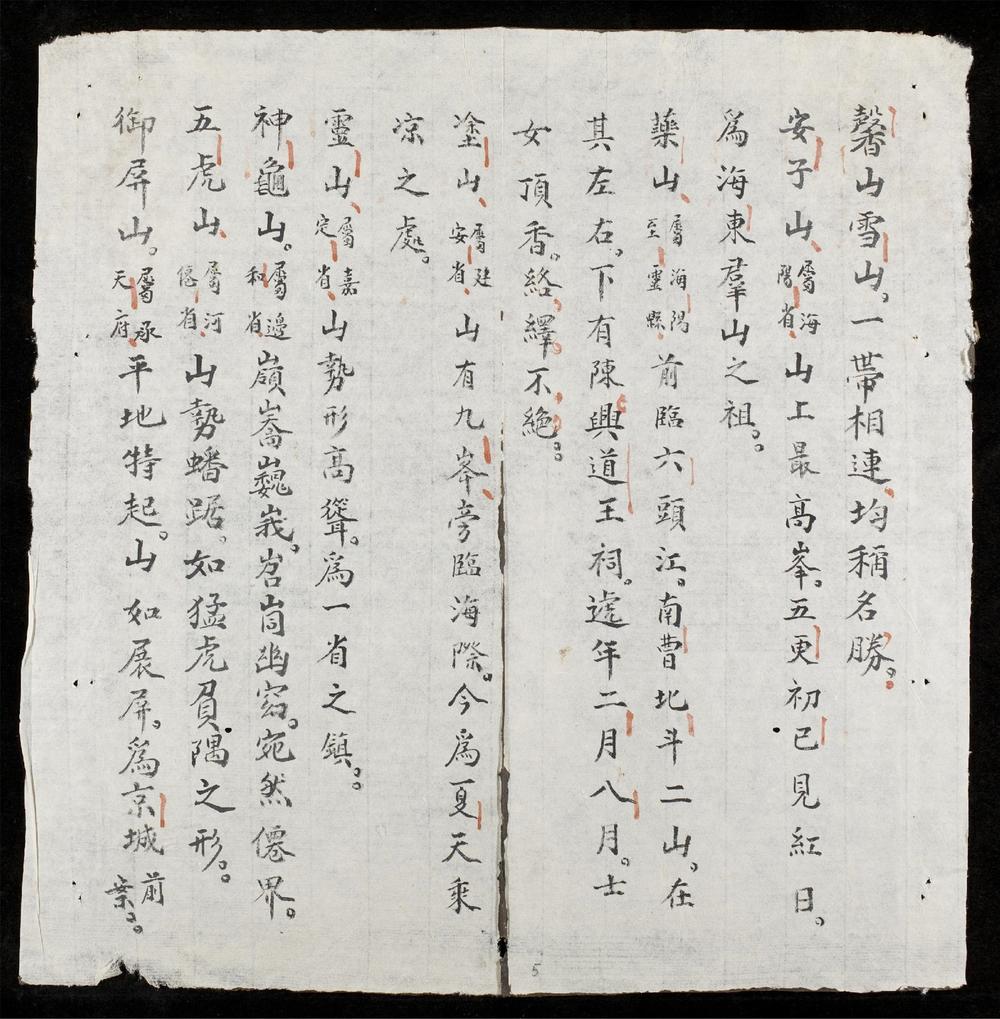 馨山雪山。一帶相連、均稱名勝。
安子山、屬海陽省、山上最高峯。五更初已見紅日。
爲海東羣山之祖。
藥山、屬海陽至靈縣、前臨六頭江。南曹北斗二山。在
其左右。下有陳興道王祠。遞年二月八月。士
女頂香。絡繹不絕。
塗山、屬建安省、山有九峯、旁臨海際。今爲夏天乘
凉之處。
靈山、屬嘉定省、山勢形高聳。爲一省之鎮。
神龜山。屬邊和省嶺嵩巍峩。岧崗幽窈。宛然僊界。
五虎山、屬河僊省、山勢蟠踞。如猛虎負隅之形。
御屏山。屬承天府、平地特起。山如展屏。爲京城前案。
5